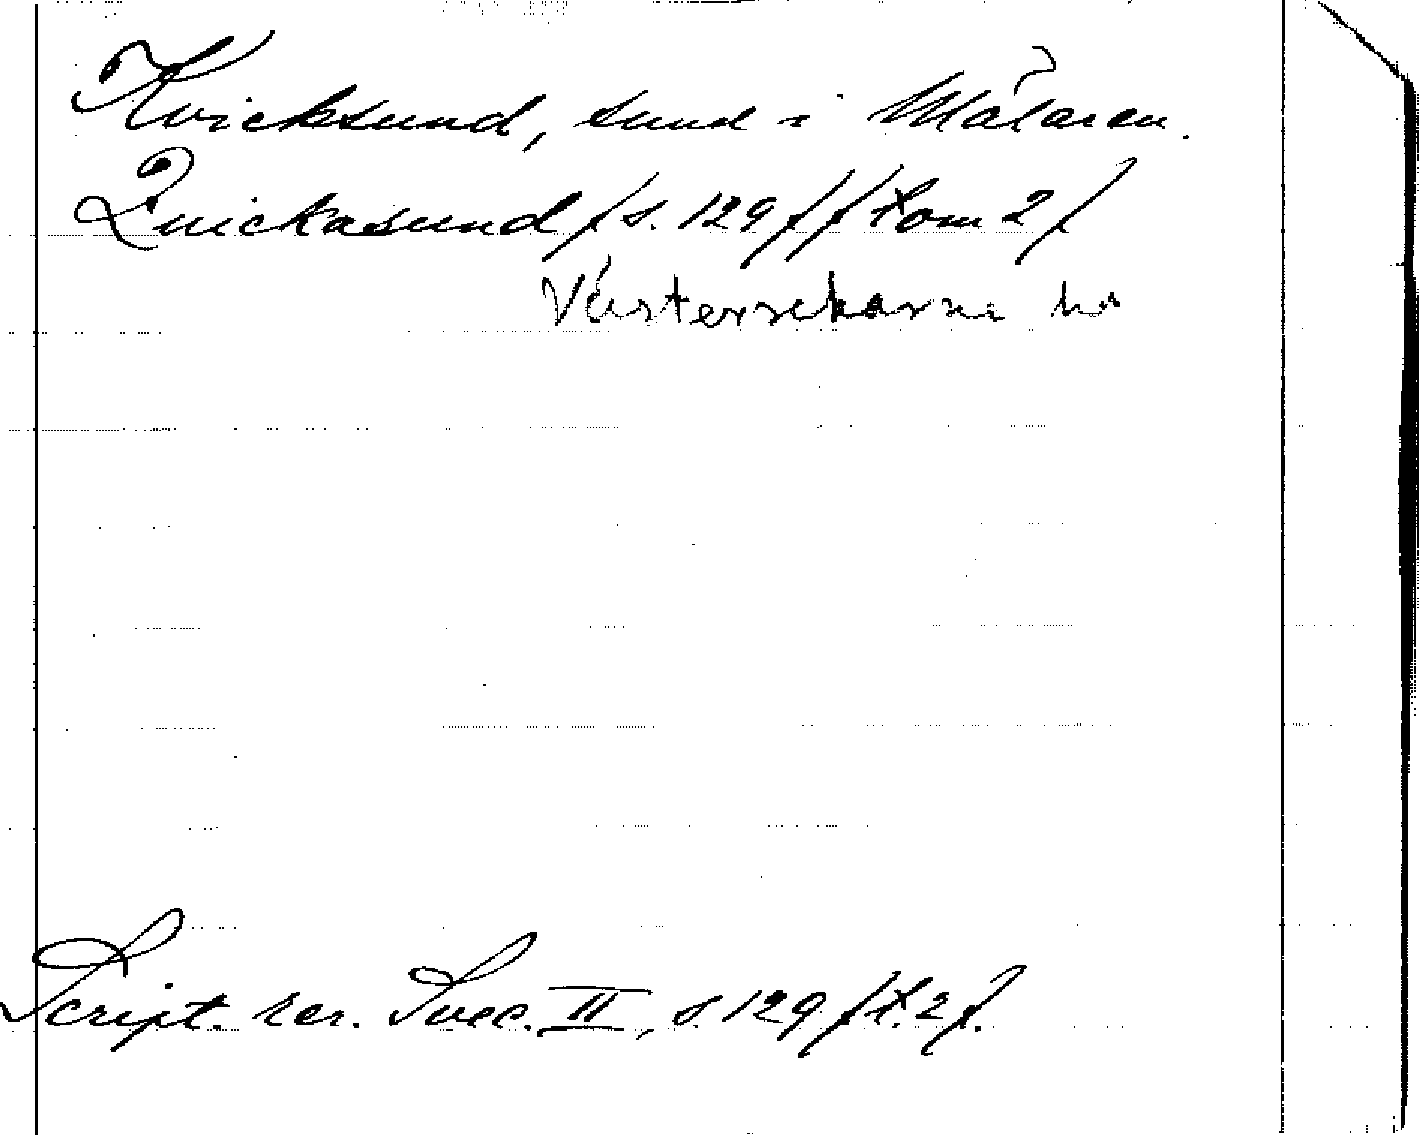 Kvicksund, sund i Mälaren.
Quickasund /s. 129/ /tom 2/
Västerrekarne hd
Script. rer. Svec. II, s. 129 /t. 2/.